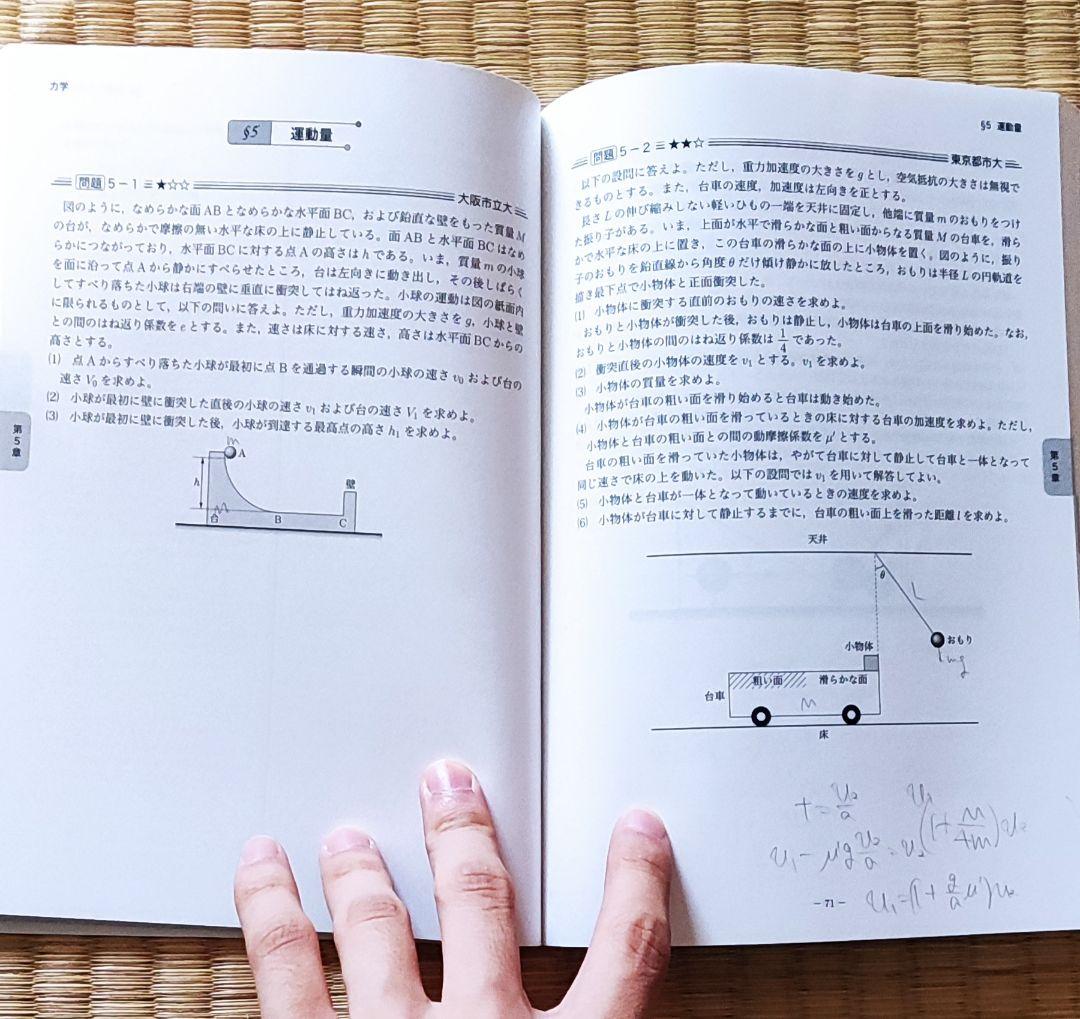 力学
§5 運動量
問題 5-1 ★☆☆
大阪市立大
図のように，なめらかな面ABとなめらかな水平面BC，および鉛直な壁をもった質量M
の台が，なめらかで摩擦の無い水平な床の上に静止している。面ABと水平面BCはなめ
らかにつながっており，水平面BCに対する点Aの高さはhである。いま，質量mの小球
を面に沿って点Aから静かにすべらせたところ，台は左向きに動き出し，その後しばらく
してすべり落ちた小球は右端の壁に垂直に衝突してはね返った。小球の運動は図の紙面内
に限られるものとして，以下の問いに答えよ。ただし，重力加速度の大きさをg，小球と壁
との間のはね返り係数をeとする。また，速さは床に対する速さ，高さは水平面BCからの
高さとする。
(1) 点Aからすべり落ちた小球が最初に点Bを通過する瞬間の小球の速さv₀および台の
速さV₀を求めよ。
(2) 小球が最初に壁に衝突した直後の小球の速さv₁および台の速さV₁を求めよ。
(3) 小球が最初に壁に衝突した後，小球が到達する最高点の高さh₁を求めよ。
m
A
h
壁
台
M
B
C
第5章
§5 運動量
問題 5-2 ★★☆
東京都市大
以下の設問に答えよ。ただし，重力加速度の大きさをgとし，空気抵抗の大きさは無視で
きるものとする。また，台車の速度，加速度は左向きを正とする。
長さLの伸び縮みしない軽いひもの一端を天井に固定し，他端に質量mのおもりをつけ
た振り子がある。いま，上面が水平で滑らかな面と粗い面からなる質量Mの台車を，滑ら
かで水平な床の上に置き，この台車の滑らかな面の上に小物体を置く。図のように，振り
子のおもりを鉛直線から角度θだけ傾け静かに放したところ，おもりは半径Lの円軌道を
描き最下点で小物体と正面衝突した。
(1) 小物体に衝突する直前のおもりの速さを求めよ。
おもりと小物体が衝突した後，おもりは静止し，小物体は台車の上面を滑り始めた。なお，
おもりと小物体の間のはね返り係数は1/4であった。
(2) 衝突直後の小物体の速度をv₁とする。v₁を求めよ。
(3) 小物体の質量を求めよ。
小物体が台車の粗い面を滑り始めると台車は動き始めた。
(4) 小物体が台車の粗い面を滑っているときの床に対する台車の加速度を求めよ。ただし，
小物体と台車の粗い面との間の動摩擦係数をμ'とする。
台車の粗い面を滑っていた小物体は，やがて台車に対して静止して台車と一体となって
同じ速さで床の上を動いた。以下の設問ではv₁を用いて解答してよい。
(5) 小物体と台車が一体となって動いているときの速度を求めよ。
(6) 小物体が台車に対して静止するまでに，台車の粗い面上を滑った距離lを求めよ。
第5章
天井
θ
L
おもり
mg
小物体
粗い面 滑らかな面
台車
M
床
t=v₂/a
v₁
(1+M/4m)v₂
v₁-μ'g v₂/a=v₂
v₁=(1+g/a μ')v₂
-71-